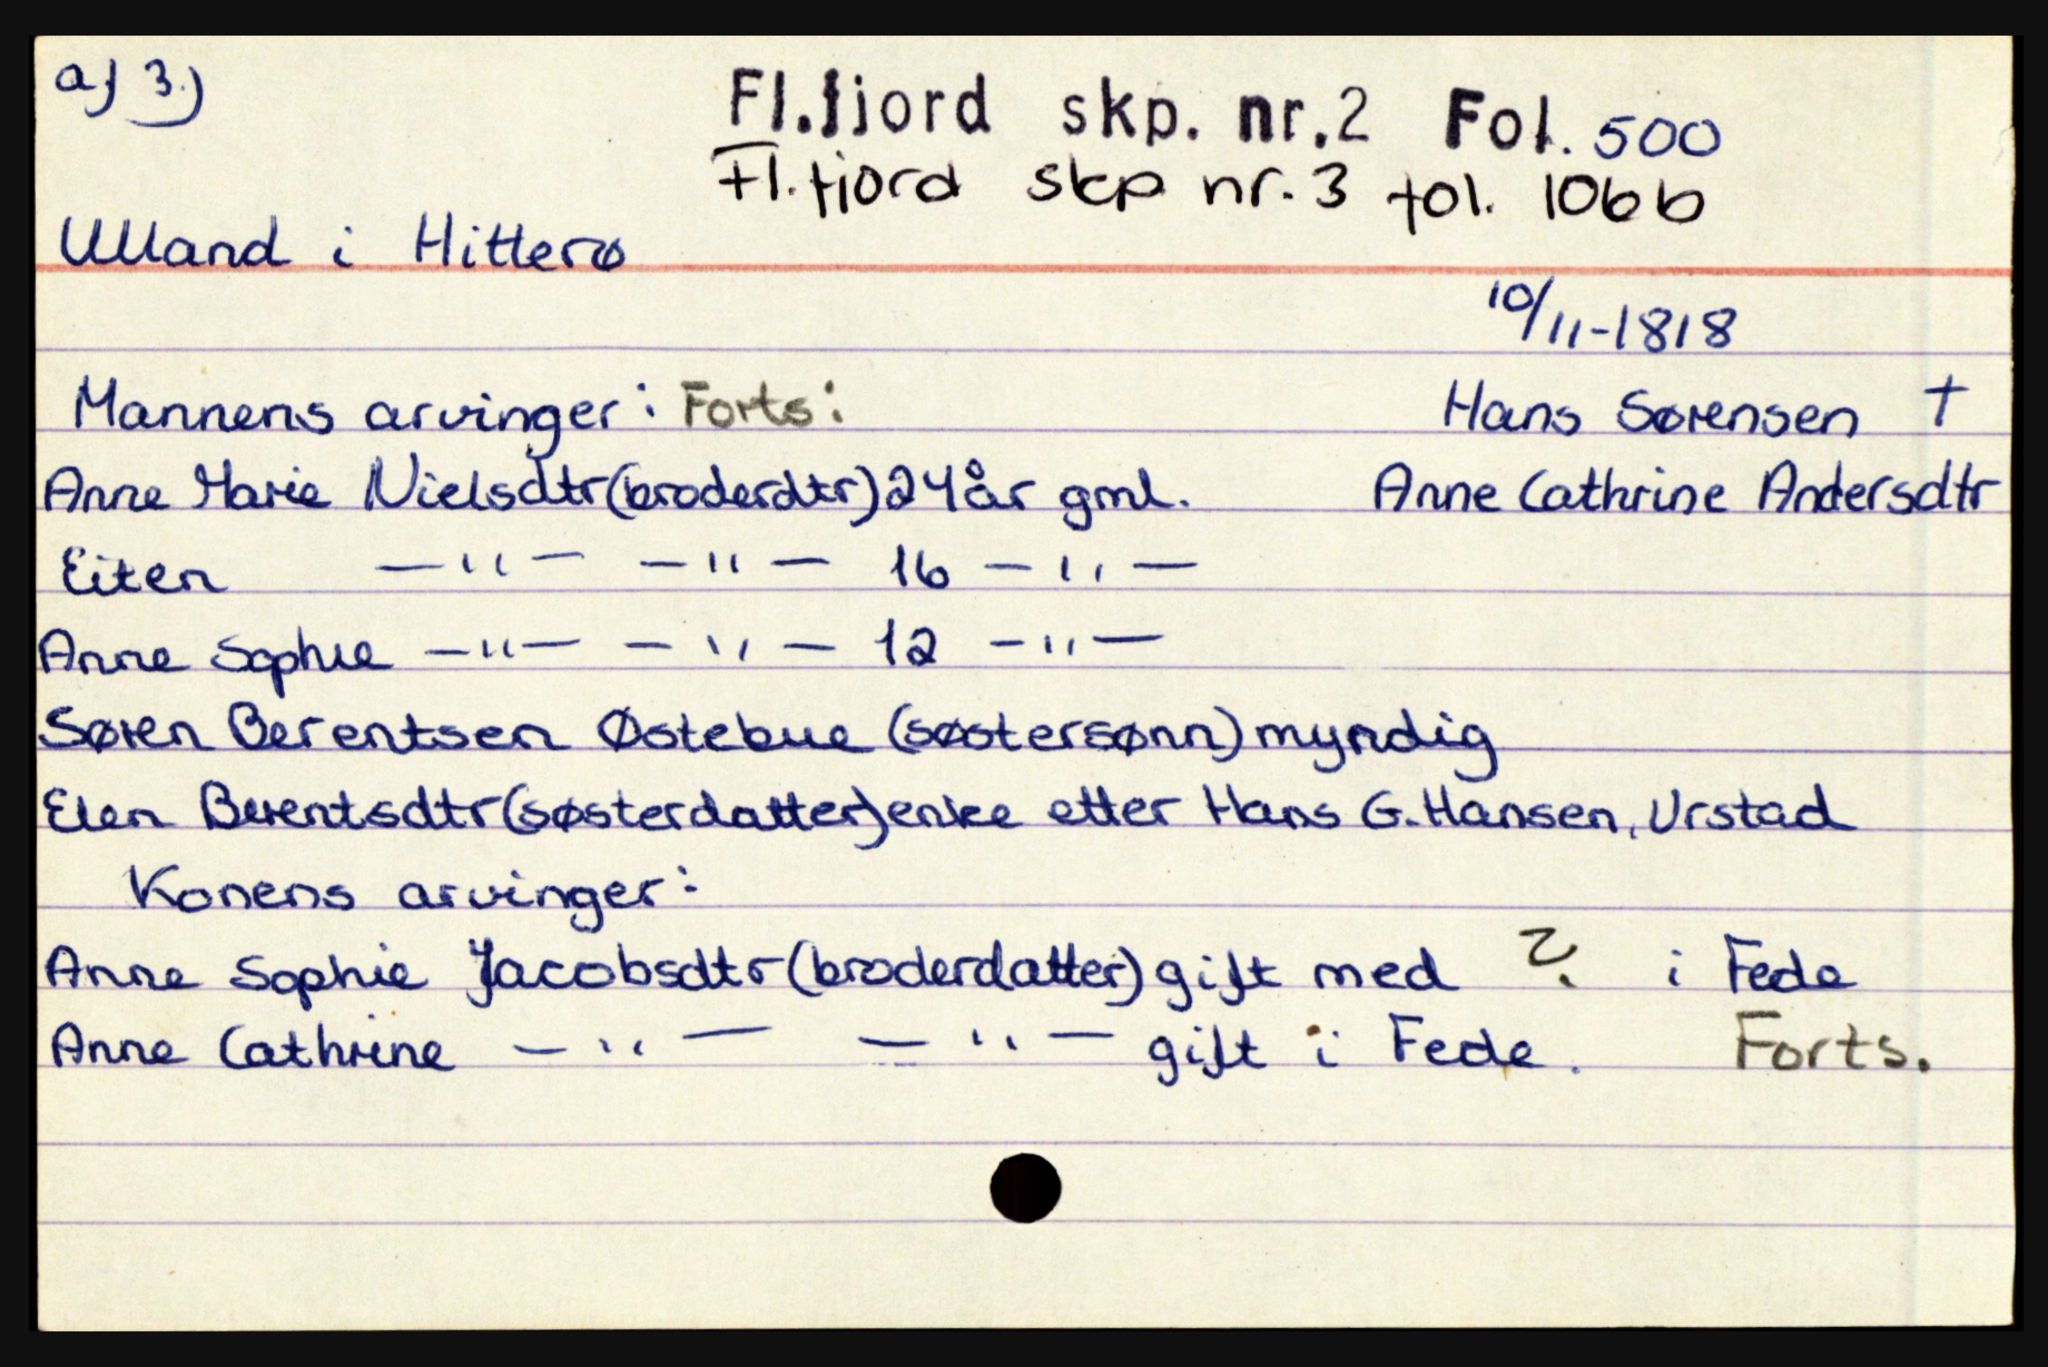 af 3.)
Fl.fjord skp. nr.2 Fol. 500
Fl.fjord skp nr.3 fol. 106b
Ulland i Hitterø
10/11-1818
Mannens arvinger: Forts: Hans Sørensen †
Anne Marie Nielsdtr(broderdtr)24år gml. Anne Cathrine Andersdtr
Eiten —"— —"— 16 —"—
Anne Sophie —"— —"— 12 —"—
Søren Berentsen Østebue (søstersønn) myndig
Elen Berentsdtr(søsterdatter)enke etter Hans G. Hansen, Urstad
Konens arvinger:
Anne Sophie Jacobsdtr(broderdatter) gift med ? i Fede
Anne Cathrine —"— —"— gift i Fede. Forts.